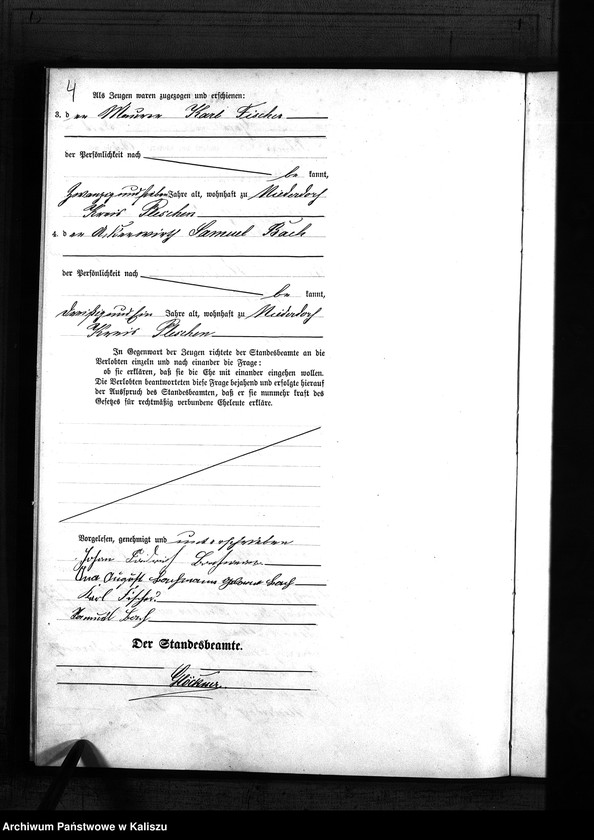 4
Als Zeugen waren zugezogen und erschienen:
3. der Maurer Karl Fischer
der Persönlichkeit nach
be kannt,
Zwanzigundsieben Jahre alt, wohnhaft zu Niederdorf
Kreis Pleschen
4. der Ackerwirth Samuel Bach
der Persönlichkeit nach
be kannt,
dreißigundein Jahre alt, wohnhaft zu Niederdorf
Kreis Pleschen
In Gegenwart der Zeugen richtete der Standesbeamte an die
Verlobten einzeln und nach einander die Frage:
ob sie erklären, daß sie die Ehe mit einander eingehen wollen.
Die Verlobten beantworteten diese Frage bejahend und erfolgte hierauf
der Ausspruch des Standesbeamten, daß er sie nunmehr kraft des
Gesetzes für rechtmäßig verbundene Eheleute erkläre.
Vorgelesen, genehmigt und unterschrieben
Johan
August Bachmann geborne Bach
Karl Fischer
Samuel Bach
Der Standesbeamte.
Glöckner
Archiwum Państwowe w Kaliszu